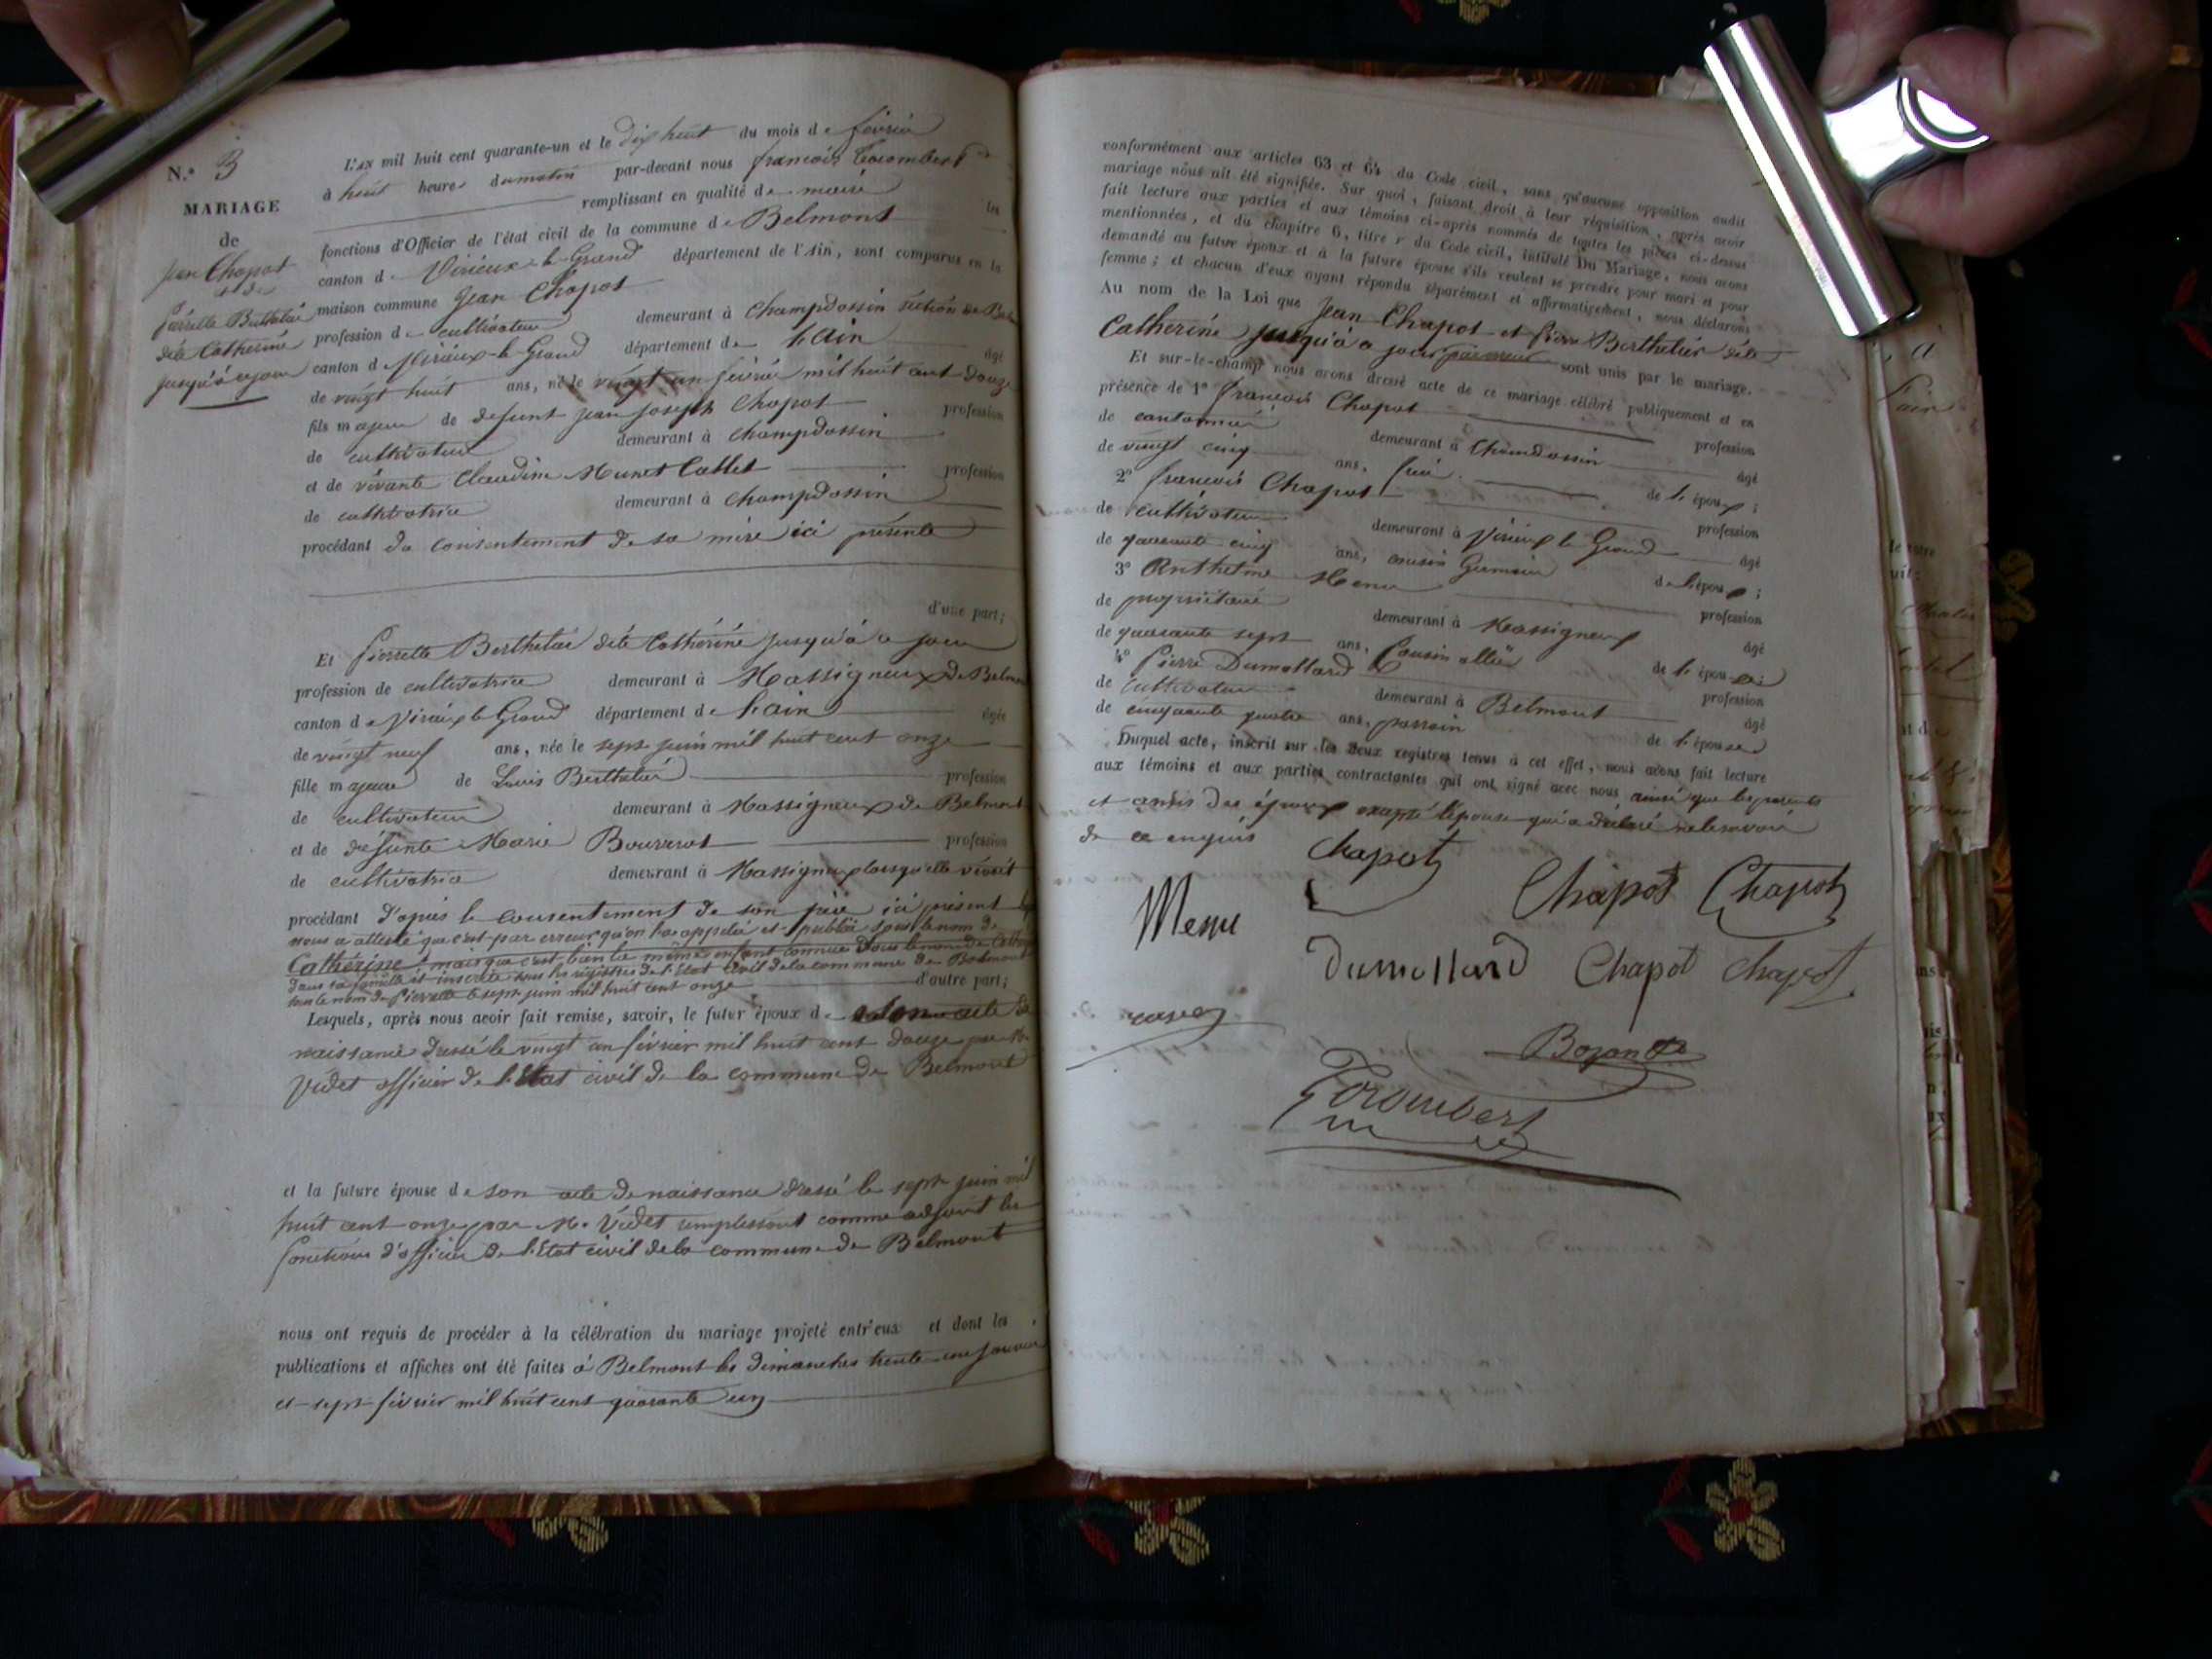 N.° 3
MARIAGE
de
Jean Chapot
et de
Pierrette Berthelier
dite Catherine
jusqu'à ce jour
L'AN mil huit cent quarante-un et le dix huit du mois de février
à huit heures du matin par-devant nous françois
remplissant en qualité de maire les
fonctions d'Officier de l'état civil de la commune de Belmont
canton de Virieux-le-Grand département de l'Ain, sont comparus en la
maison commune Jean Chapot
profession de cultivateur demeurant à Champdossin section de
canton de Virieux-le-Grand département de L'Ain âgé
de vingt huit ans, né le vingt un février mil huit cent douze
fils majeur de defunt jean joseph Chapot profession
de cultivateur demeurant à Champdossin
et de vivante Claudine Munet Cattet profession
de cultivatrice demeurant à Champdossin
procédant du consentement de sa mère ici présente
d'une part;
Et Pierrette Berthelier dite Catherine jusqu'à ce jour
profession de cultivatrice demeurant à Massigneux de Belmont
canton de Virieux le Grand département de L'ain âgée
de vingt neuf ans, née le sept juin mil huit cent onze
fille majeure de Louis Berthelier profession
de cultivateur demeurant à Massigneux de Belmont
et de défunte Marie Bouvrot profession
de cultivatrice demeurant à Massigneux lorsqu'elle vivait
procédant d'après le consentement de son père ici présent
nous a attesté que c'est par erreur qu'on l'a appelée et publiée sous le nom de
Catherine, mais que c'est bien la même enfant connue sous le nom de
dans sa famille et inscrite sur les registres de l'état civil de la commune de Belmont
sous le nom de Pierrette le sept juin mil huit cent onze d'autre part;
Lesquels, après nous avoir fait remise, savoir, le futur époux de son acte de
naissance dressé le vingt un février mil huit cent douze par M.
Videt officier de l'Etat civil de la commune de Belmont
et la future épouse de son acte de naissance dressé le sept juin mil
huit cent onze par M. Videt remplissant comme adjoint les
fonctions d'officier de l'Etat civil de la commune de Belmont
nous ont requis de procéder à la célébration du mariage projeté entr'eux et dont les
publications et affiches ont été faites à Belmont les dimanches trente un janvier
et sept février mil huit cent quarante un
conformément aux articles 63 et 64 du Code civil, sans qu'aucune opposition audit
mariage nous ait été signifiée. Sur quoi, faisant droit à leur réquisition, après avoir
fait lecture aux parties et aux témoins ci-après nommés de toutes les pièces ci-dessus
mentionnées, et du chapitre 6, titre V du Code civil, intitulé Du Mariage, nous avons
demandé au futur époux et à la future épouse s'ils veulent se prendre pour mari et pour
femme; et chacun d'eux ayant répondu séparément et affirmativement, nous déclarons
Au nom de la Loi que Jean Chapot et Pierre Berthelier dite
Catherine jusqu'à ce jour par erreur sont unis par le mariage.
Et sur-le-champ nous avons dressé acte de ce mariage célébré publiquement et en
présence de 1° françois Chapot profession
de cantonnier demeurant à Champdossin âgé
de vingt cinq ans, frère de l'époux;
2° françois Chapot profession
de cultivateur demeurant à Virieux le Grand âgé
de quarante cinq ans, cousin Germain de l'époux;
3° Anthelme Menu profession
de propriétaire demeurant à Massigneux âgé
de quarante sept ans, Cousin allié de l'épouse;
4° Pierre Dumollard profession
de cultivateur demeurant à Belmont âgé
de cinquante quatre ans, parrain de l'épouse
Duquel acte, inscrit sur les deux registres tenus à cet effet, nous avons fait lecture
aux témoins et aux parties contractantes qui ont signé avec nous ainsi que les parents
et amis des époux excepté l'épouse qui a déclaré ne le savoir
de ce enquis
Chapot
Chapot Chapot
Menu
Dumollard Chapot Chapot